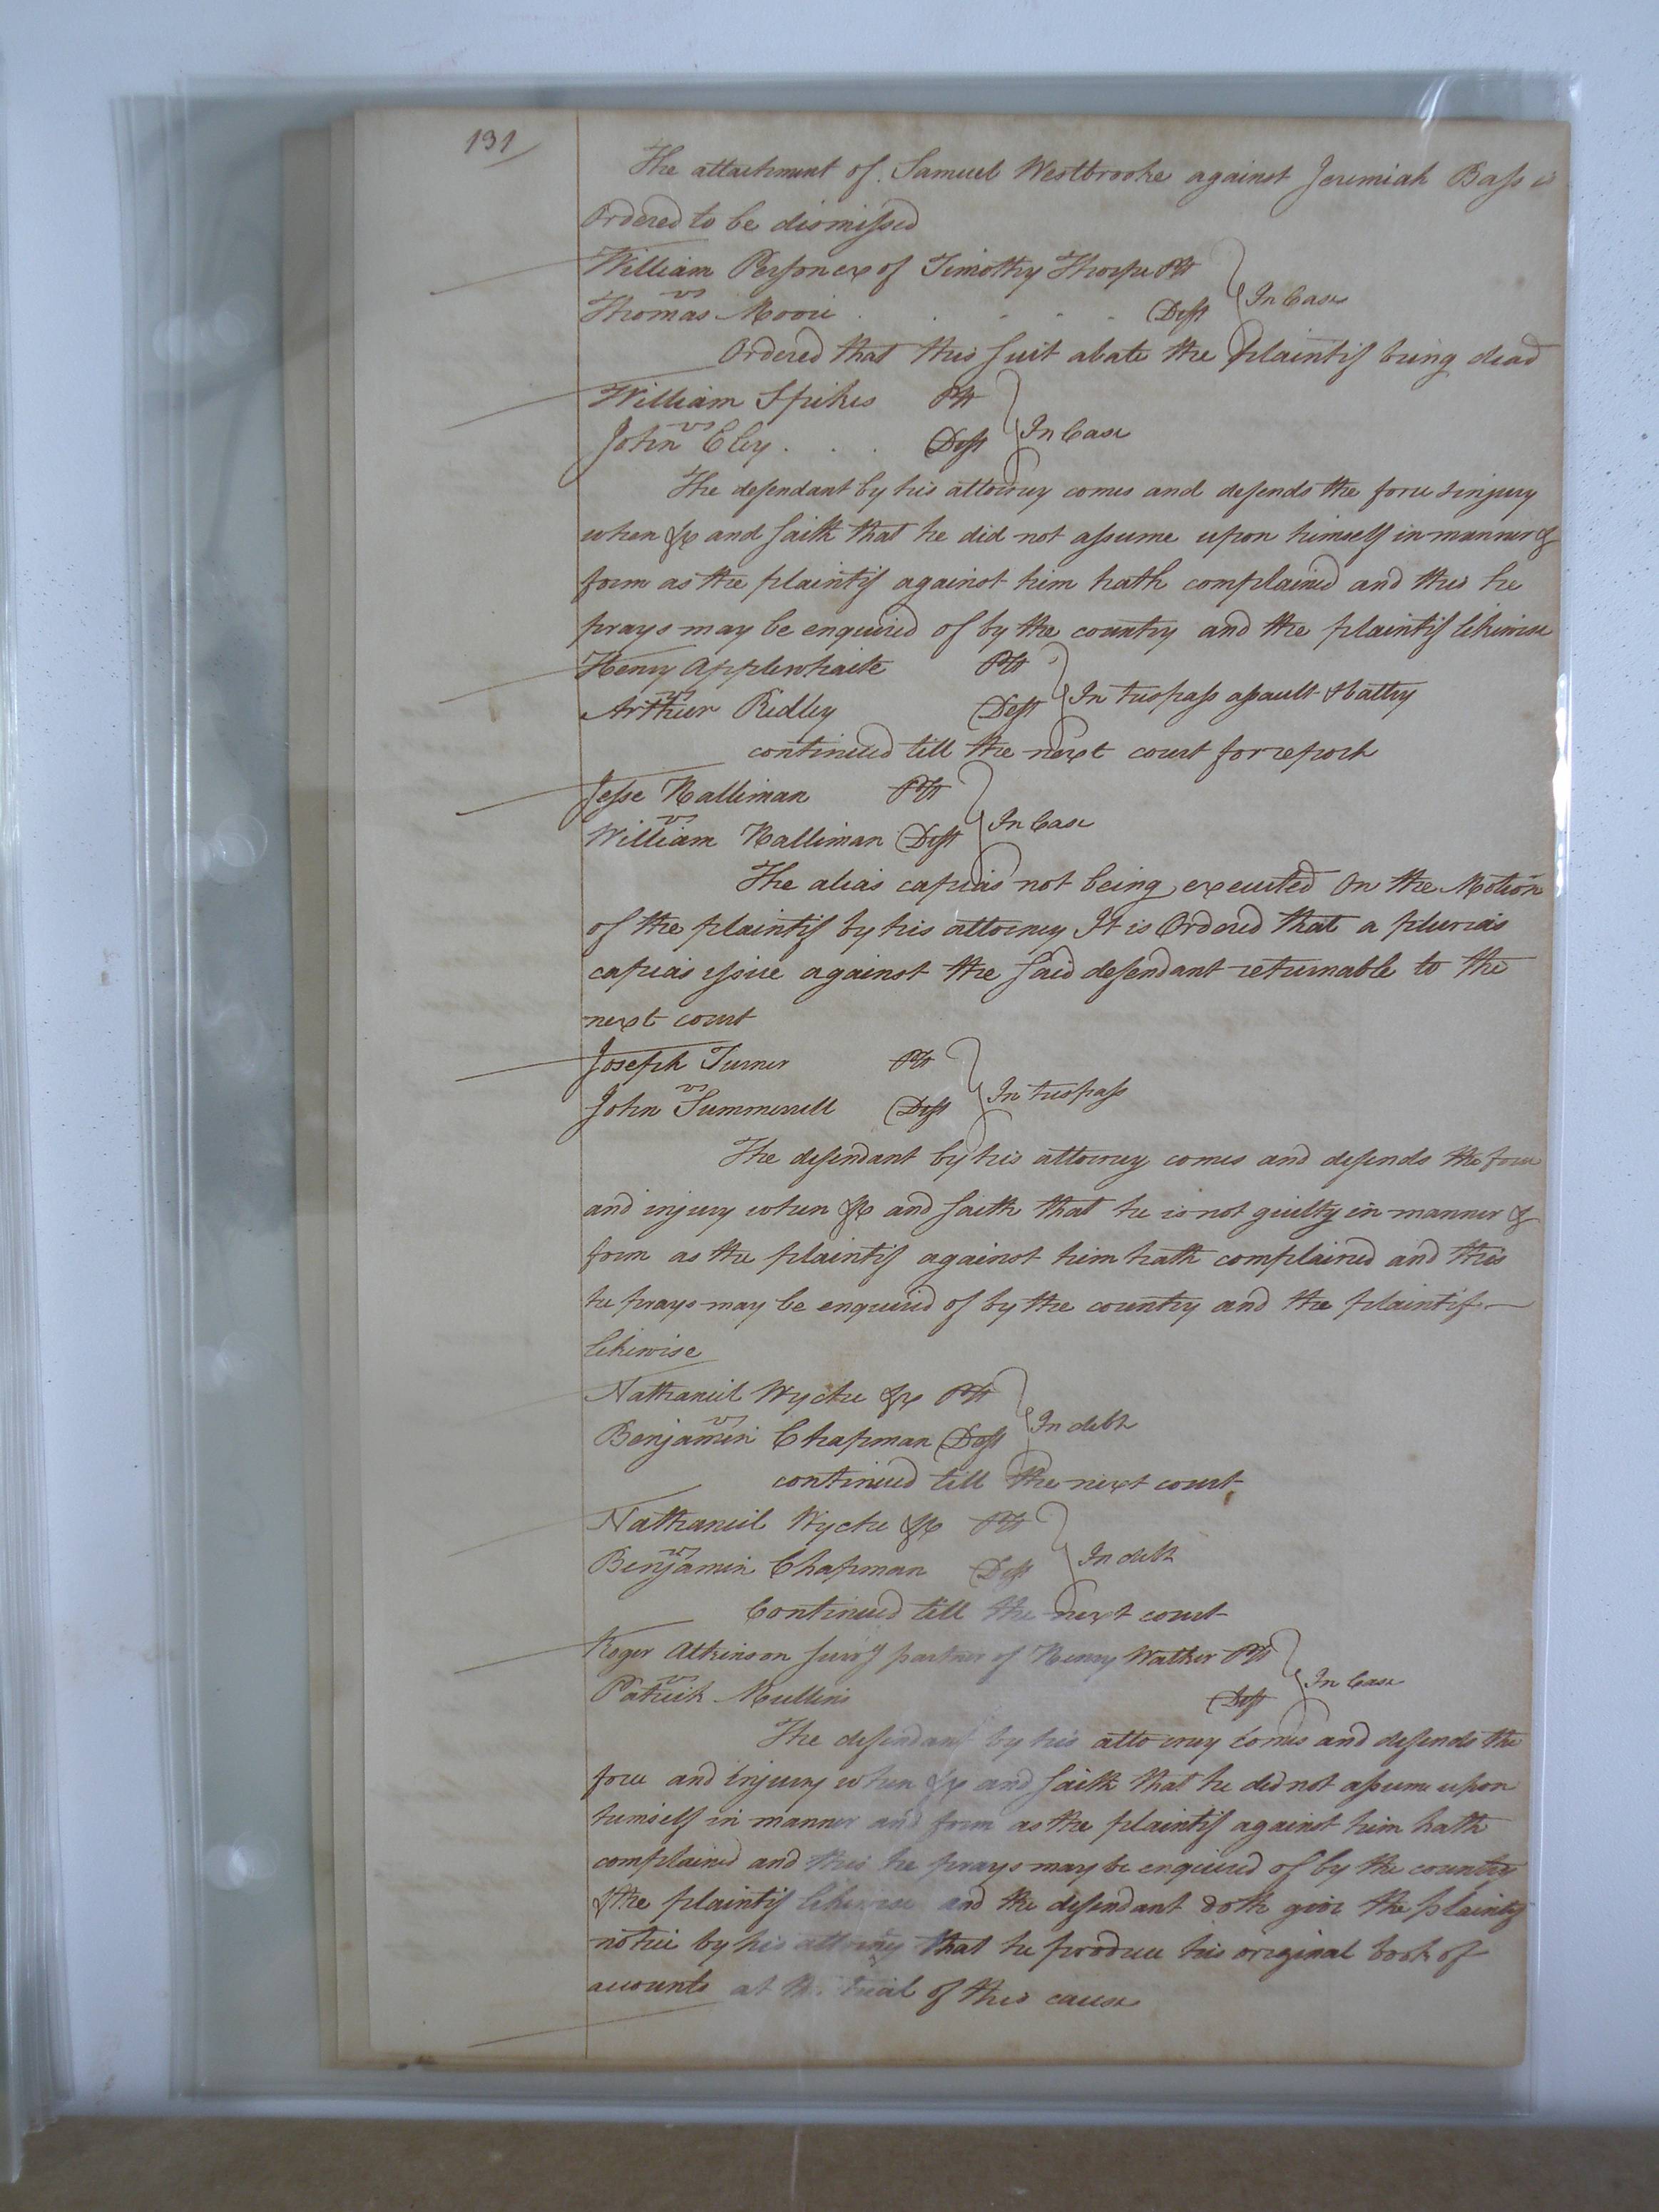 131
The attachment of Samuel Westbrooke against Jeremiah Bass is
Ordered to be dismissed
William Person ex of Timothy Thorpe Plt
vs
Thomas Moore . . . . . Deft
In Case
Ordered that this suit abate the plaintif being dead
William Spikes Plt
vs
John Eley . . . Deft
In Case
The defendant by his attorney comes and defends the force & injury
when &c and saith that he did not assume upon himself in manner &
form as the plaintif against him hath complained and this he
prays may be enquired of by the country and the plaintif likewise
Henry Applewhaite Plt
vs
Arthur Ridley Deft
In trespass assault & battry
continued till the next court for report
Jesse Halliman Plt
vs
William Halliman Deft
In Case
The alias capias not being executed On the Motion
of the plaintif by his attorney It is Ordered that a plurias
capias issue against the said defendant returnable to the
next court
Joseph Turner Plt
vs
John Summerell Deft
In trespass
The defendant by his attorney comes and defends the force
and injury when &c and saith that he is not guilty in manner &
form as the plaintif against him hath complained and this
he prays may be enquired of by the country and the plaintif
likewise
Nathaniel Wyche &c Plt
vs
Benjamin Chapman Deft
In debt
continued till the next court
Nathaniel Wyche &c Plt
vs
Benjamin Chapman Deft
In debt
Continued till the next court
Roger Atkinson survg partner of Henry Walker Plt
vs
Patrick Mullins Deft
In Case
The defendant by his attorney comes and defends the
force and injury when &c and saith that he did not assume upon
himself in manner and form as the plaintif against him hath
complained and this he prays may be enquired of by the country
& the plaintif likewise and the defendant doth give the plaintif
notice by his attorney that he produce his original book of
accounts at the trial of this cause